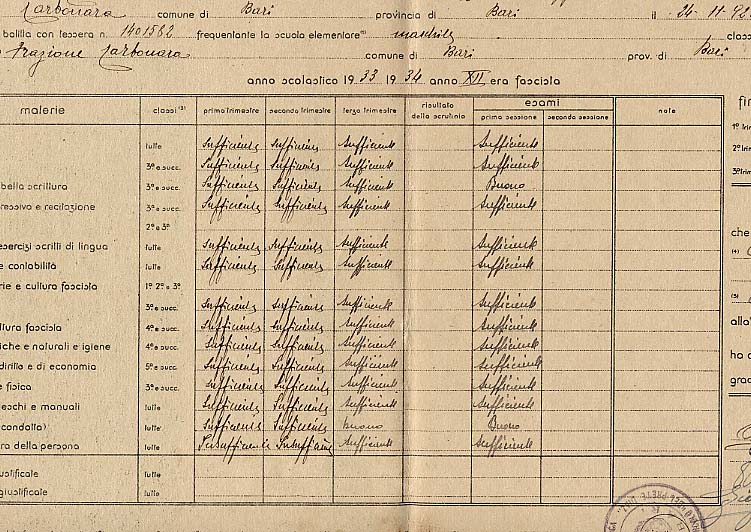 Carbonara comune di Bari provincia di Bari il 24-11-92
balilla con tessera n. 1401562 frequentante la scuola elementare maschile class
frazione Carbonara comune di Bari prov. di Bari
anno scolastico 1933 1934 anno XII era fascista
materie classi (3) primo trimestre secondo trimestre terzo trimestre risultato dello scrutinio esami prima sessione seconda sessione note
tutte Sufficiente Sufficiente Sufficiente Sufficiente
3ª e succ. Sufficiente Sufficiente Sufficiente Sufficiente
bella scrittura 3ª e succ. Sufficiente Sufficiente Sufficiente Buono
ressiva e recitazione 3ª e succ. Sufficiente Sufficiente Sufficiente Sufficiente
2ª e 3ª
esercizi scritti di lingua tutte Sufficiente Sufficiente Sufficiente Sufficiente
e contabilità tutte Sufficiente Sufficiente Sufficiente Sufficiente
rie e cultura fascista 1ª 2ª e 3ª
3ª e succ. Sufficiente Sufficiente Sufficiente Sufficiente
ltura fascista 4ª e succ. Sufficiente Sufficiente Sufficiente Sufficiente
iche e naturali e igiene 4ª e succ. Sufficiente Sufficiente Sufficiente Sufficiente
diritto e di economia 5ª e succ. Sufficiente Sufficiente Sufficiente Sufficiente
e fisica 3ª e succ. Sufficiente Sufficiente Sufficiente Sufficiente
eschi e manuali tutte Sufficiente Sufficiente Sufficiente Sufficiente
(condotta) tutte Sufficiente Sufficiente buono Buono
ra della persona tutte Insufficiente Insufficiente Sufficiente Sufficiente
giustificate tutte
giustificate tutte
fi
1º trim
2º trim
3º trim
che
(4)
(5)
alla
ha
grad